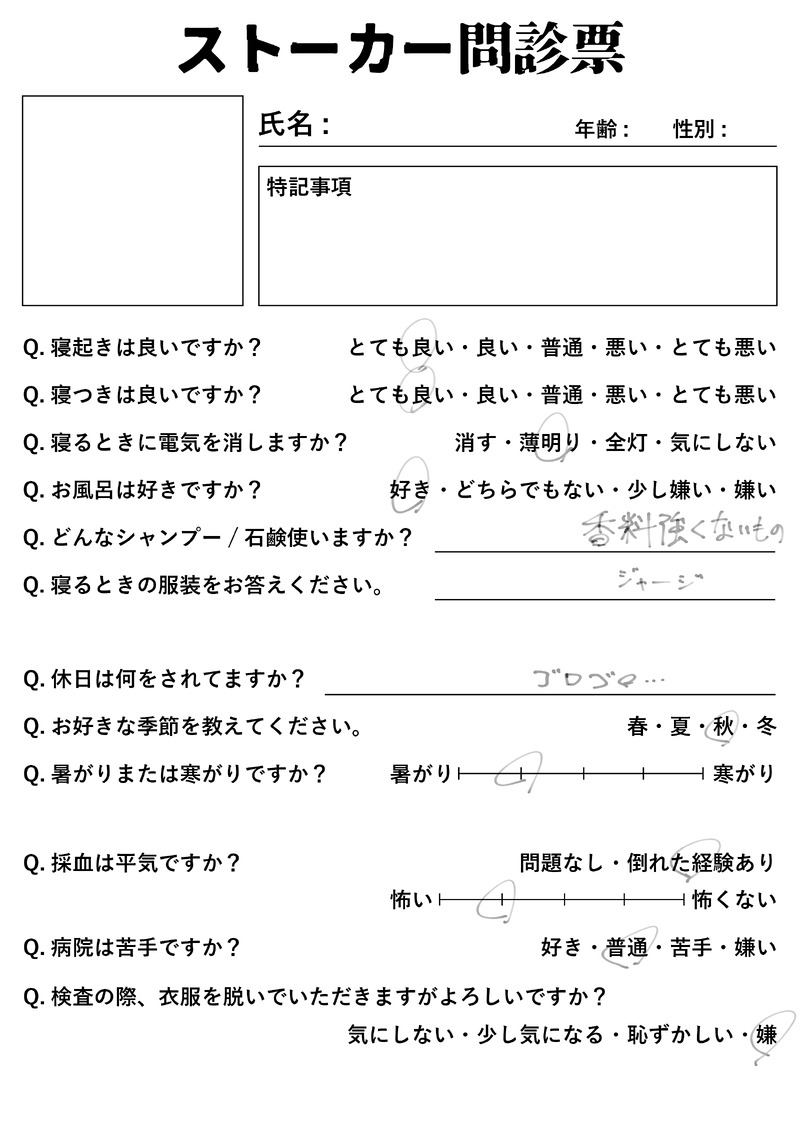 ストーカー問診票
氏名： 年齢： 性別：
特記事項
Q. 寝起きは良いですか？ とても良い・良い・普通・悪い・とても悪い
Q. 寝つきは良いですか？ とても良い・良い・普通・悪い・とても悪い
Q. 寝るときに電気を消しますか？ 消す・薄明り・全灯・気にしない
Q. お風呂は好きですか？ 好き・どちらでもない・少し嫌い・嫌い
Q. どんなシャンプー / 石鹸使いますか？ 香料強くないもの
Q. 寝るときの服装をお答えください。 ジャージ
Q. 休日は何をされてますか？ ゴロゴロ…
Q. お好きな季節を教えてください。 春・夏・秋・冬
Q. 暑がりまたは寒がりですか？ 暑がり 寒がり
Q. 採血は平気ですか？ 問題なし・倒れた経験あり
怖い 怖くない
Q. 病院は苦手ですか？ 好き・普通・苦手・嫌い
Q. 検査の際、衣服を脱いでいただきますがよろしいですか？
気にしない・少し気になる・恥ずかしい・嫌